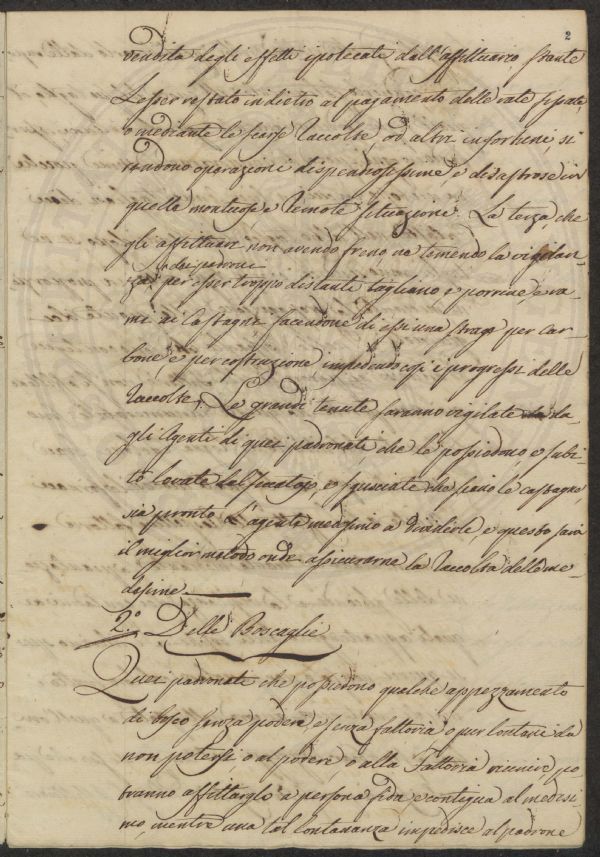 2
vendita degli effetti ipotecati dall'affittuario stante
l'esser restato indietro al pagamento delle rate fissate,
o mediante le scarse raccolte, od altri infortuni si
rendono operazioni dispendiosissime, e disastrose in
quella montuosa e remota situazione. La terza, che
gli affittuari non avendo freno, nè temendo la vigilan-
dei padroni
za, per esser troppo distante tagliano, e
mi di Castagni facendone di essi una strage per car-
bone, e per costruzione, impedendo così i progressi delle
raccolte. Le grandi tenute saranno vigilate da-
gli Agenti di quei padronati che le possiedono, e subi-
to levate dal, e sgusciate che sieno le castagne,
sia pronto l'agente medesimo a dividerle, e questo sarà
il miglior metodo onde assicurarne la raccolta delle me-
desime.
2.º Delle Boscaglie
Quei padronati che possiedono qualche appezzamento
di bosco senza podere, e senza fattoria o pur lontani da
non potersi o al podere, o alla Fattoria riunire, po-
tranno affittarglo a persona fida e contigua al medesi-
mo, mentre una tal lontananza impedisce al padrone